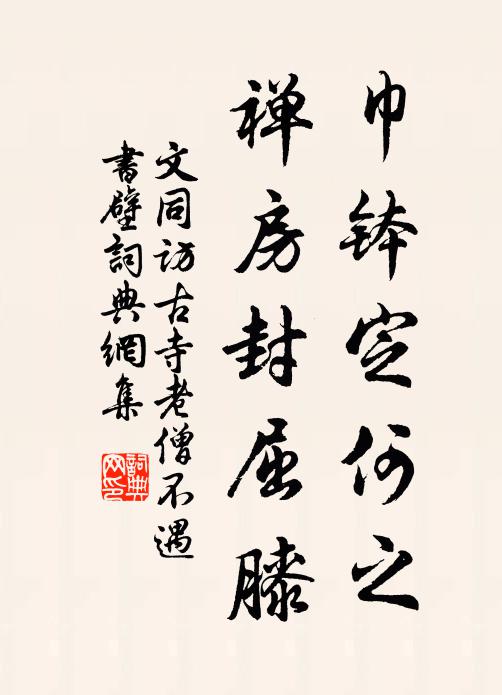 巾钵定何之
禅房封屈膝
文同访古寺老僧不遇
書壁詞典網集
詞典
网印